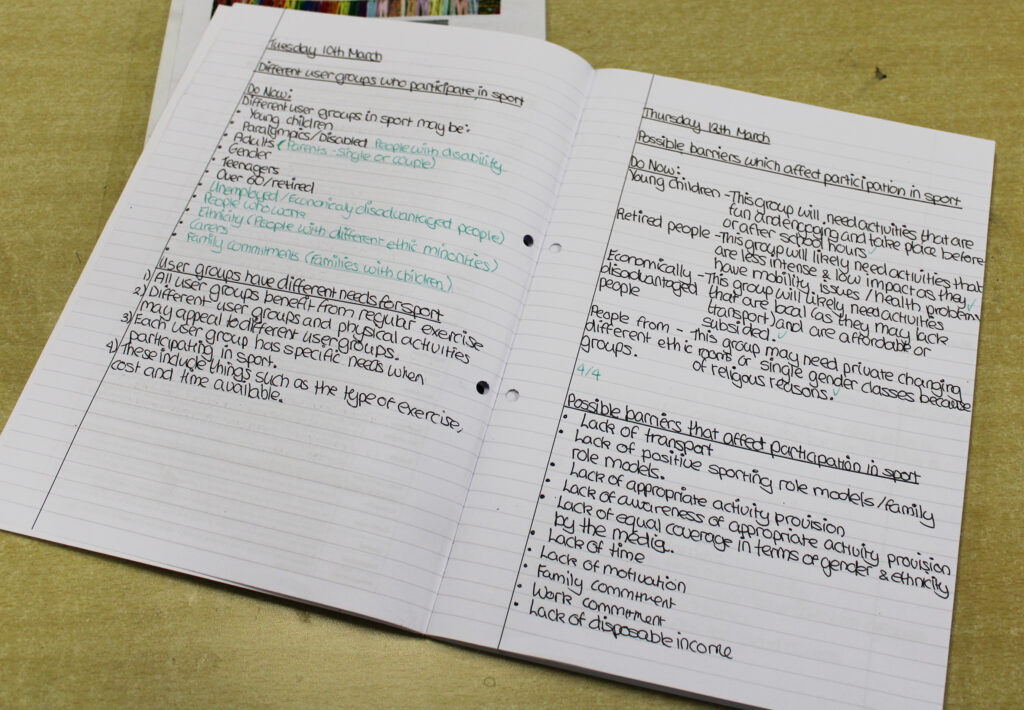 Tuesday 10th March
Different user groups who participate in sport
Do Now:
Different user groups in sport may be:
• Young children
• Paralympics/Disabled People with disability
• Adults (Parents - single or couple)
• Gender
• Teenagers
• Over 60/retired
• Unemployed/Economicaly disadvantaged people)
• People who work
• Ethnicity (People with different ethic minorities)
• Carers
• Family commitments (Families with children)
User groups have different needs for sport
1) All user groups benefit from regular exercise
2) Different user groups and physical activities
may appeal to different user groups.
3) Each user group has specific needs when
participating in sport.
4) These include things such as the type of exercise,
cost and time available.
Thursday 12th March
Possible barriers which affect participation in sport
Do Now:
Young children - This group will need activities that are
fun and engaging and take place before
or after school hours ✓
Retired people - This group will likely need activities that
are less intense & low impact as they
have mobility issues/health problems ✓
Economically - This group will likely need activities
disadvantaged that are local (as they may lack
people transport) and are affordable or
subsided. ✓
People from - This group may need private changing
different ethic rooms or single gender classes because
groups. of religous reasons. ✓
4/4
Possible barriers that affect participation in sport
• Lack of transport
• Lack of positive sporting role models/family
role models.
• Lack of appropriate activity provision
• Lack of awareness of appropriate activity provision
• Lack of equal coverage in terms of gender & ethnicity
by the media.
• Lack of time
• Lack of motivation
• Family commitment
• Work commitment
• Lack of disposable income